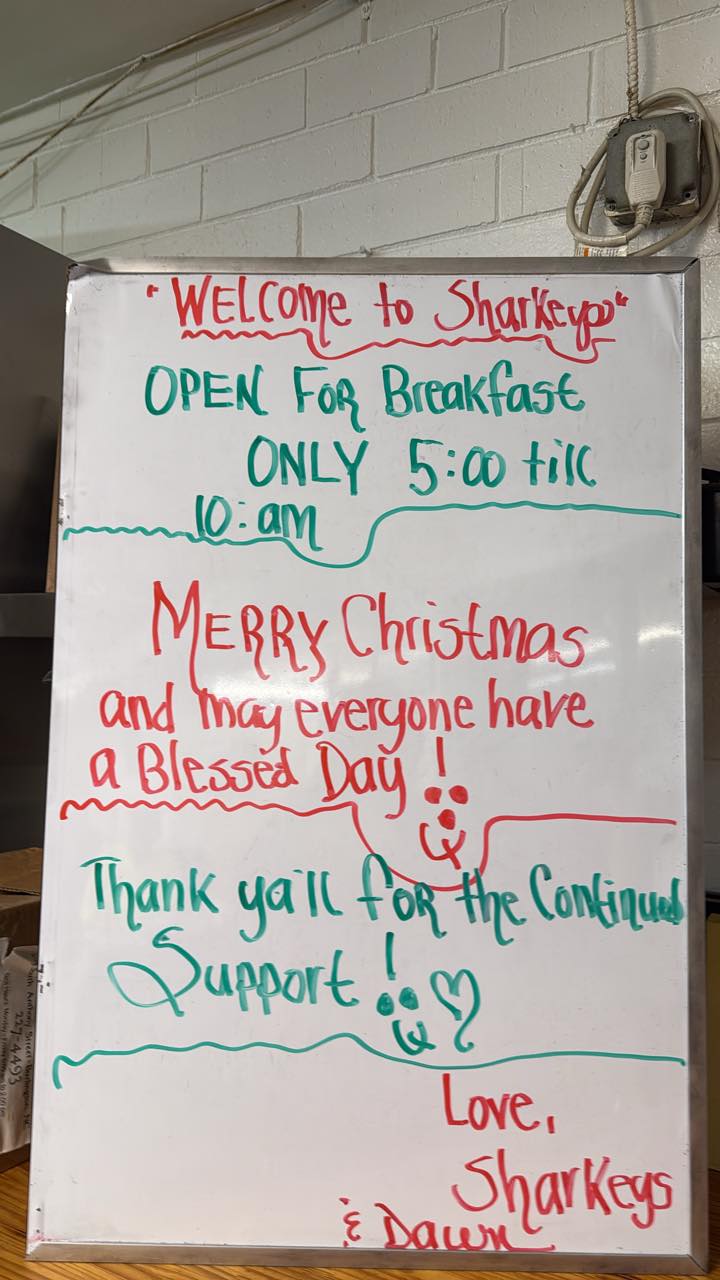 "WELCOME to SharKeys"
OPEN FOR Breakfast
ONLY 5:00 till
10: am
MERRY Christmas
and may everyone have
a Blessed Day!
Thank ya'll for the Continued
Support!
Love,
SharKeys
& Dawn
227-4493